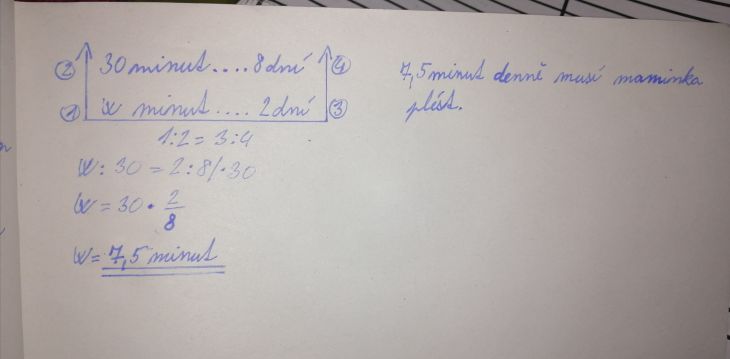 ② 30 minut .... 8 dní ④
① x minut .... 2 dní ③
1:2 = 3:4
x : 30 = 2 : 8 /· 30
x = 30 · 2/8
x = 7,5 minut
7,5 minut denně musí maminka
plést.